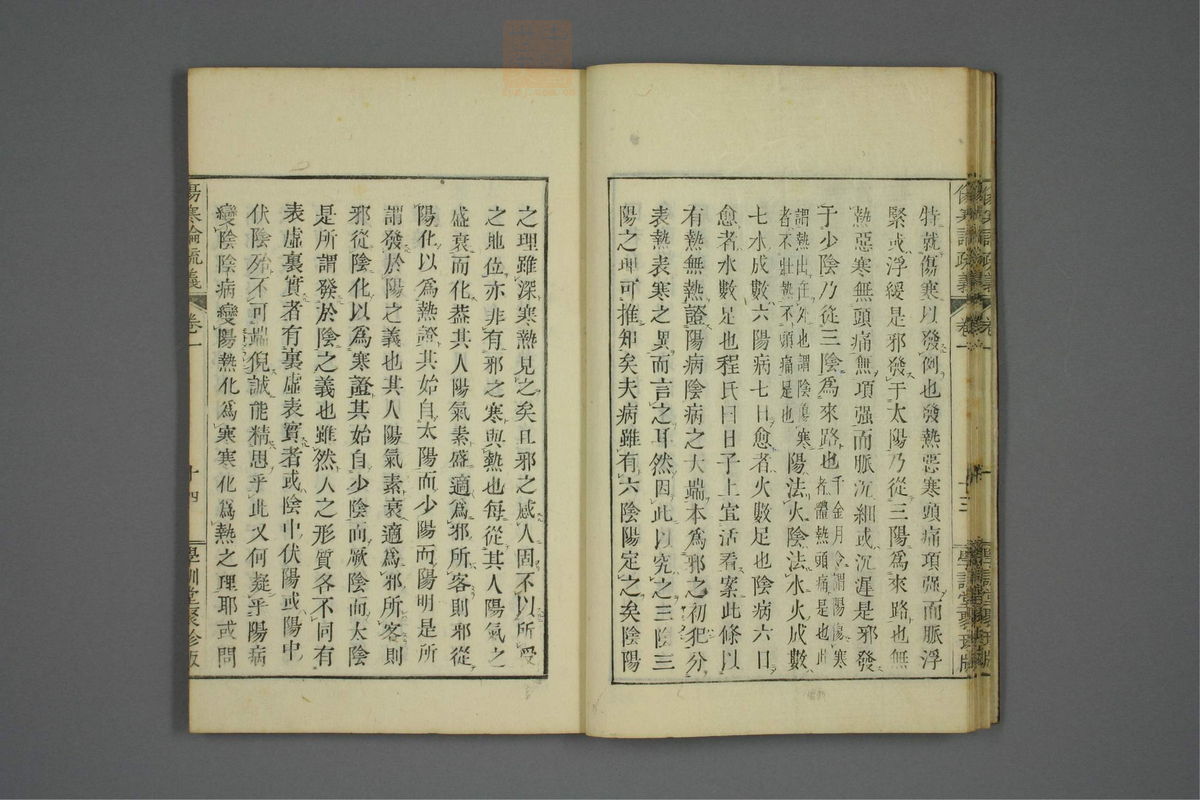 特就傷寒以發例也發熱惡寒頭痛項强而脈浮
緊或浮緩是邪發于太陽乃從三陽爲來路也無
熱惡寒無頭痛無項强而脈沉細或沉遲是邪發
于少陰乃從三陰爲來路也千金月令謂陽傷寒
者體熱頭痛是也此
謂熱出在外也謂陰傷寒
者不壯熱不頭痛是也陽法火陰法水火成數
七水成數六陽病七日愈者火數足也陰病六日
愈者水數足也程氏曰日子上宜活看案此條以
有熱無熱證陽病陰病之大端本爲邪之初犯分
表熱表寒之異而言之耳然因此以究之三陰三
陽之理可推知矣夫病雖有六陰陽定之矣陰陽
傷寒論疏義
卷一
十三
學訓堂聚珍版
之理雖深寒熱見之矣且邪之感人固不以所受
之地位亦非有邪之寒與熱也每從其人陽氣之
盛衰而化蓋其人陽氣素盛適爲邪所客則邪從
陽化以爲熱證其始自太陽而少陽而陽明是所
謂發於陽之義也其人陽氣素衰適爲邪所客則
邪從陰化以爲寒證其始自少陰而厥陰而太陰
是所謂發於陰之義也雖然人之形質各不同有
表虛裏實者有裏虛表實者或陰中伏陽或陽中
伏陰殆不可端倪誠能精思乎此又何疑乎陽病
變陰陰病變陽熱化爲寒寒化爲熱之理耶或問
傷寒論疏義
卷一
十四
學訓堂聚珍版